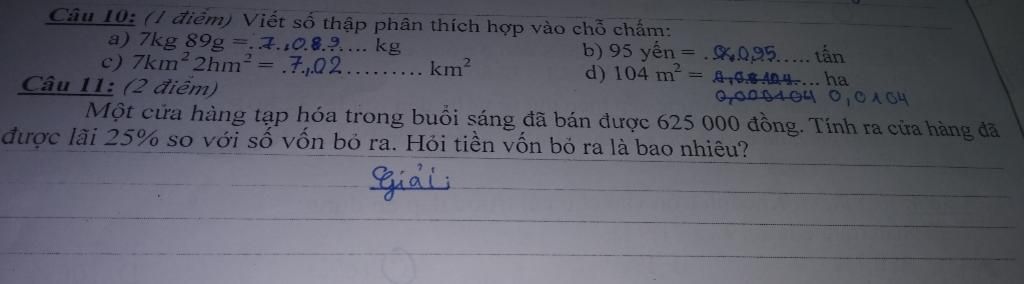 Câu 10: (1 điểm) Viết số thập phân thích hợp vào chỗ chấm:
a) 7kg 89g = 7,089 kg b) 95 yến = 0,95 tấn
c) 7km² 2hm² = 7,02 km² d) 104 m² = ha
0,000104 0,0104
Câu 11: (2 điểm)
Một cửa hàng tạp hóa trong buổi sáng đã bán được 625 000 đồng. Tính ra cửa hàng đã
được lãi 25% so với số vốn bỏ ra. Hỏi tiền vốn bỏ ra là bao nhiêu?
Giải: